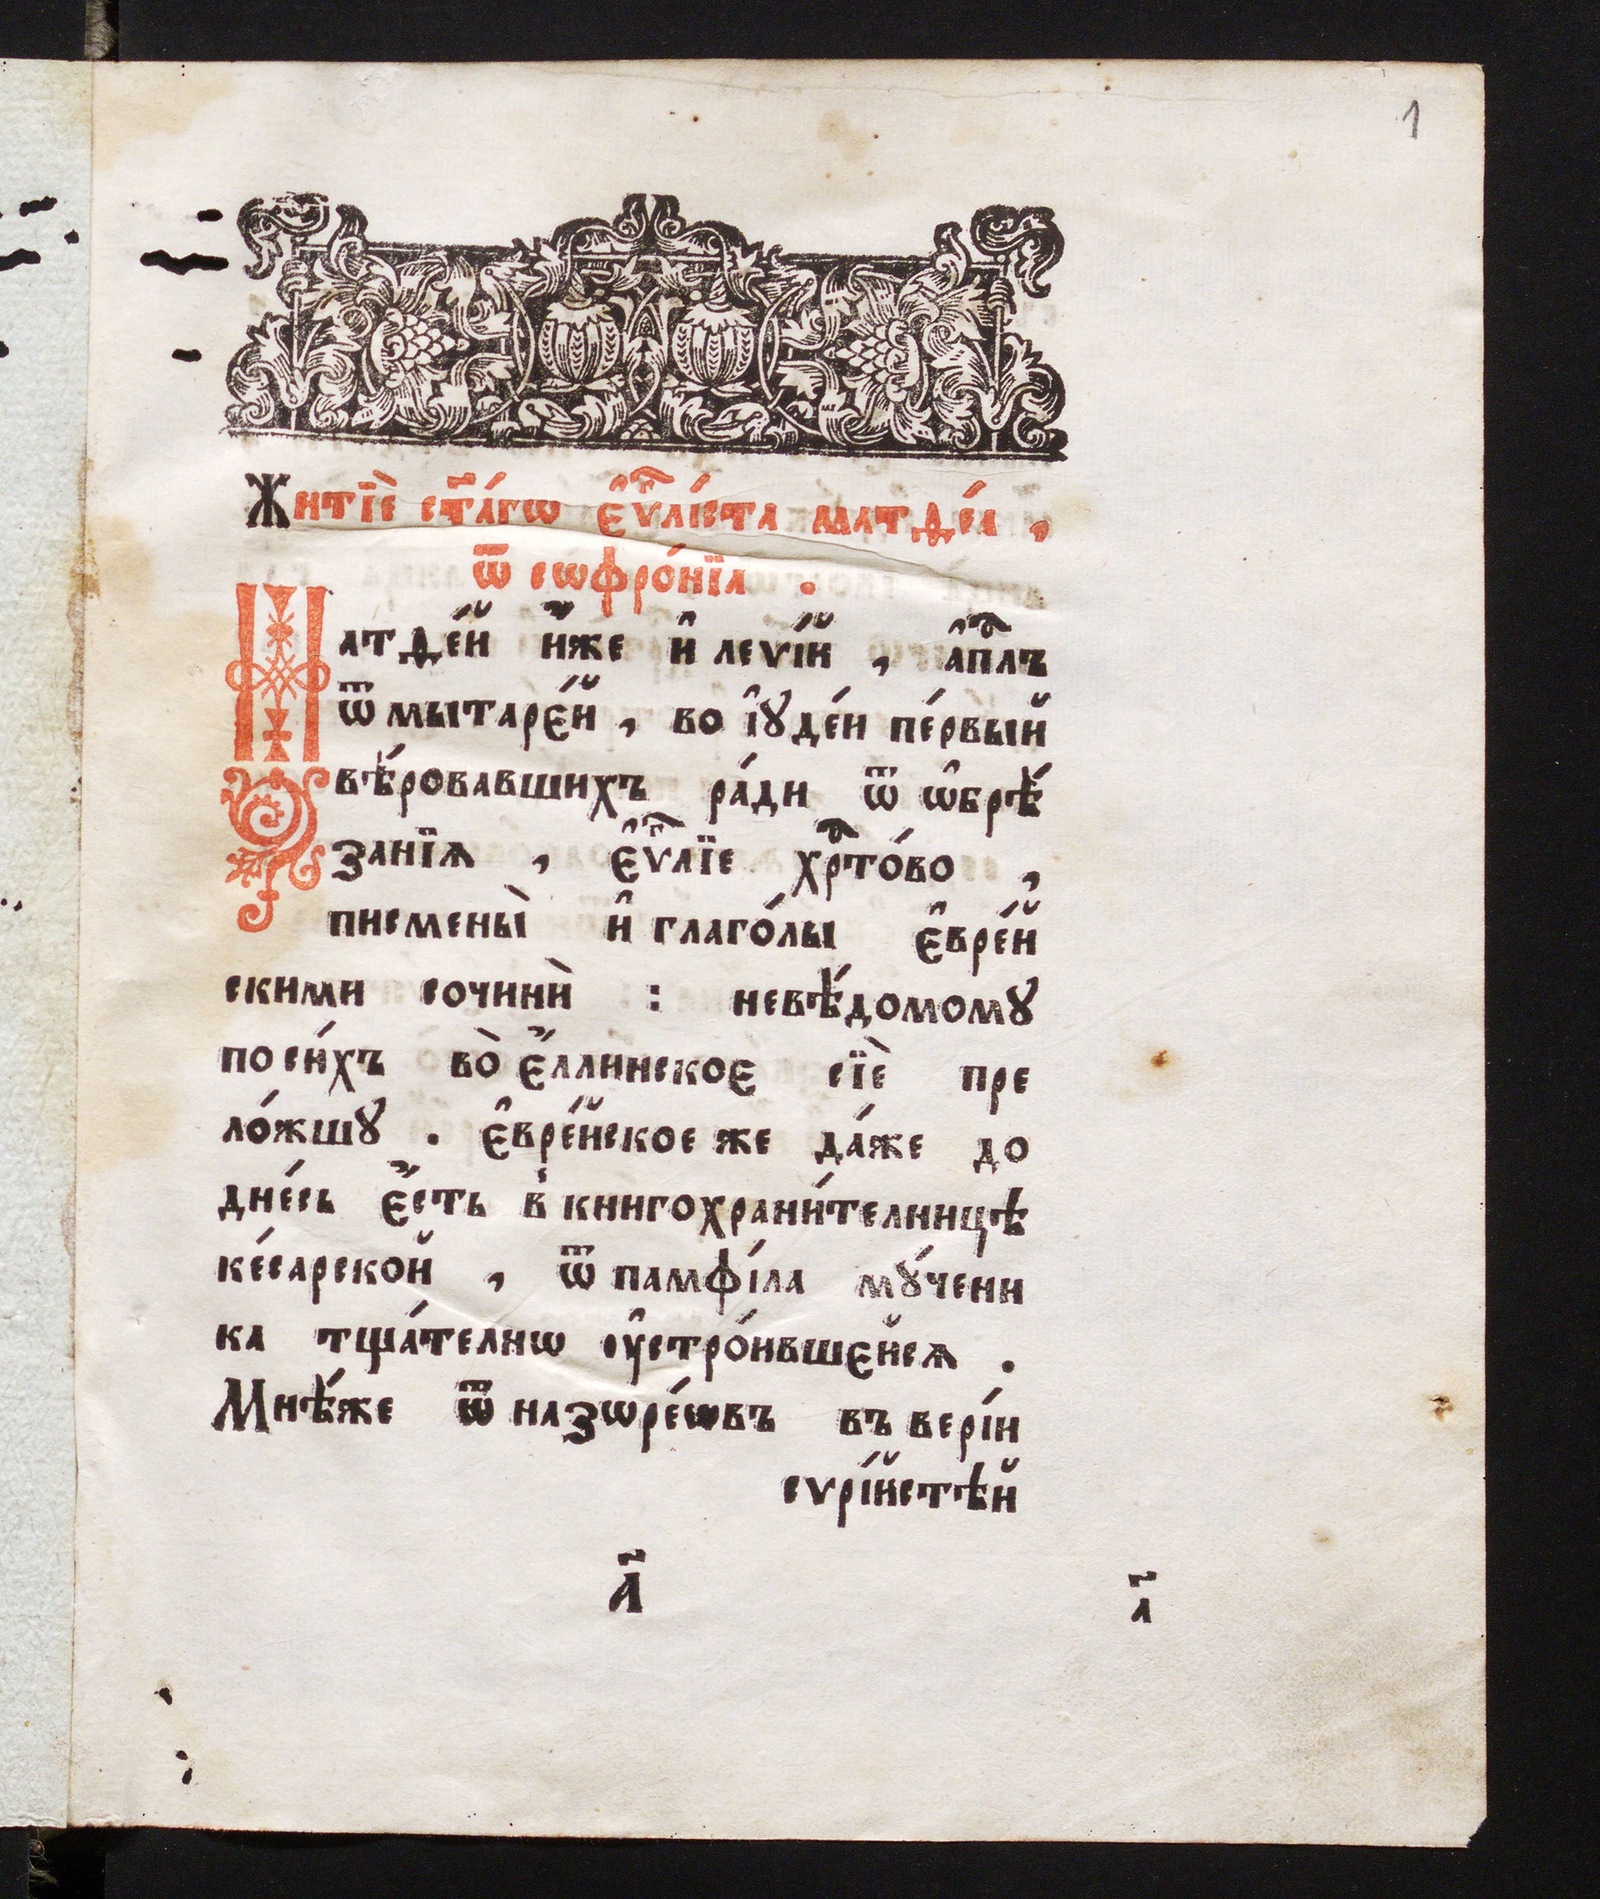 1
Житїѐ ст҃а́гѡ є҆ѵⷢ҇лі́ста матѳе́а ,
ѿ сѡфро́нїа .
Матѳе́й и҆́же и҆ леѵі́й , а҆пⷭ҇лъ
ѿ мытаре́й , во і҆ꙋде́и пе́рвый
вѣ́ровавшихъ ра́ди ѿ ѡ҆брѣ́
занїѧ , є҆ѵⷢ҇лїе хрⷭ҇то́во ,
писмены̀ и҆ глаго́лы є҆вре́й
скими сочинѝ : невѣ́домомꙋ
по си́хъ во̀ є҆́ллинское сїѐ пре
ло́жшꙋ . є҆вре́йское же да́же до
дне́сь є҆́сть в̾ книгохрани́телницѣ
ке́сарской , ѿ памфі́ла мꙋ́чени
ка тща́телнѡ ᲂу҆стро́ившейсѧ .
Мнѣ́же ѿ назѡре́ѡвъ въ вері́и
сѵрі́йстѣй
а҃
а҃